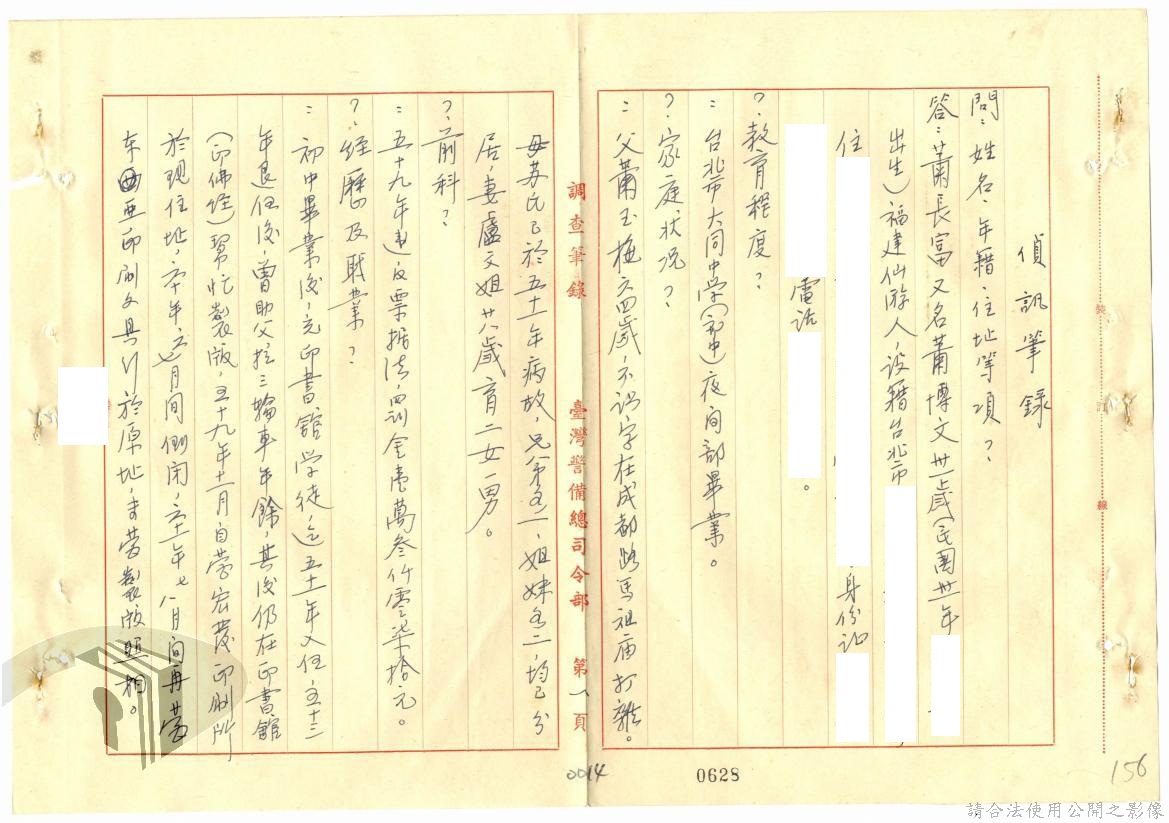 偵訊筆錄
問：姓名、年籍、住址等項？
答：蕭長富又名蕭博文卅一歲（民國卅一年
出生）福建仙游人，設籍台北市
住
身份証
電話
。
？教育程度？
：台北市大同中学（初中）夜间部畢業。
？家庭狀況？
：父蕭玉梅六四歲，不识字在成都路馬祖庙打雜。
調查筆錄
臺灣警備總司令部
第 頁
母苏氏已於五十一年病故，兄弟各一，姐妹各二，均已分
居，妻盧文姐廿八歲育二女一男。
？前科？
：五十九年違反票据法，罰金壹萬叁仟零柒拾元。
？經歷及職業？
：初中畢業後，充印書館学徒，迄五十一年入伍，五十三
年退伍後，曾助父拉三輪車年餘，其後仍在印書館
（印佛經）幫忙製版，五十九年十一月自营宏茂印刷所
於现住址，六十年六、七月间倒闭，六十一年七、八月间再营
东亚印刷文具行於原址，专营製版照相。
裝
訂
線
0014
0628
156
請合法使用公開之影像